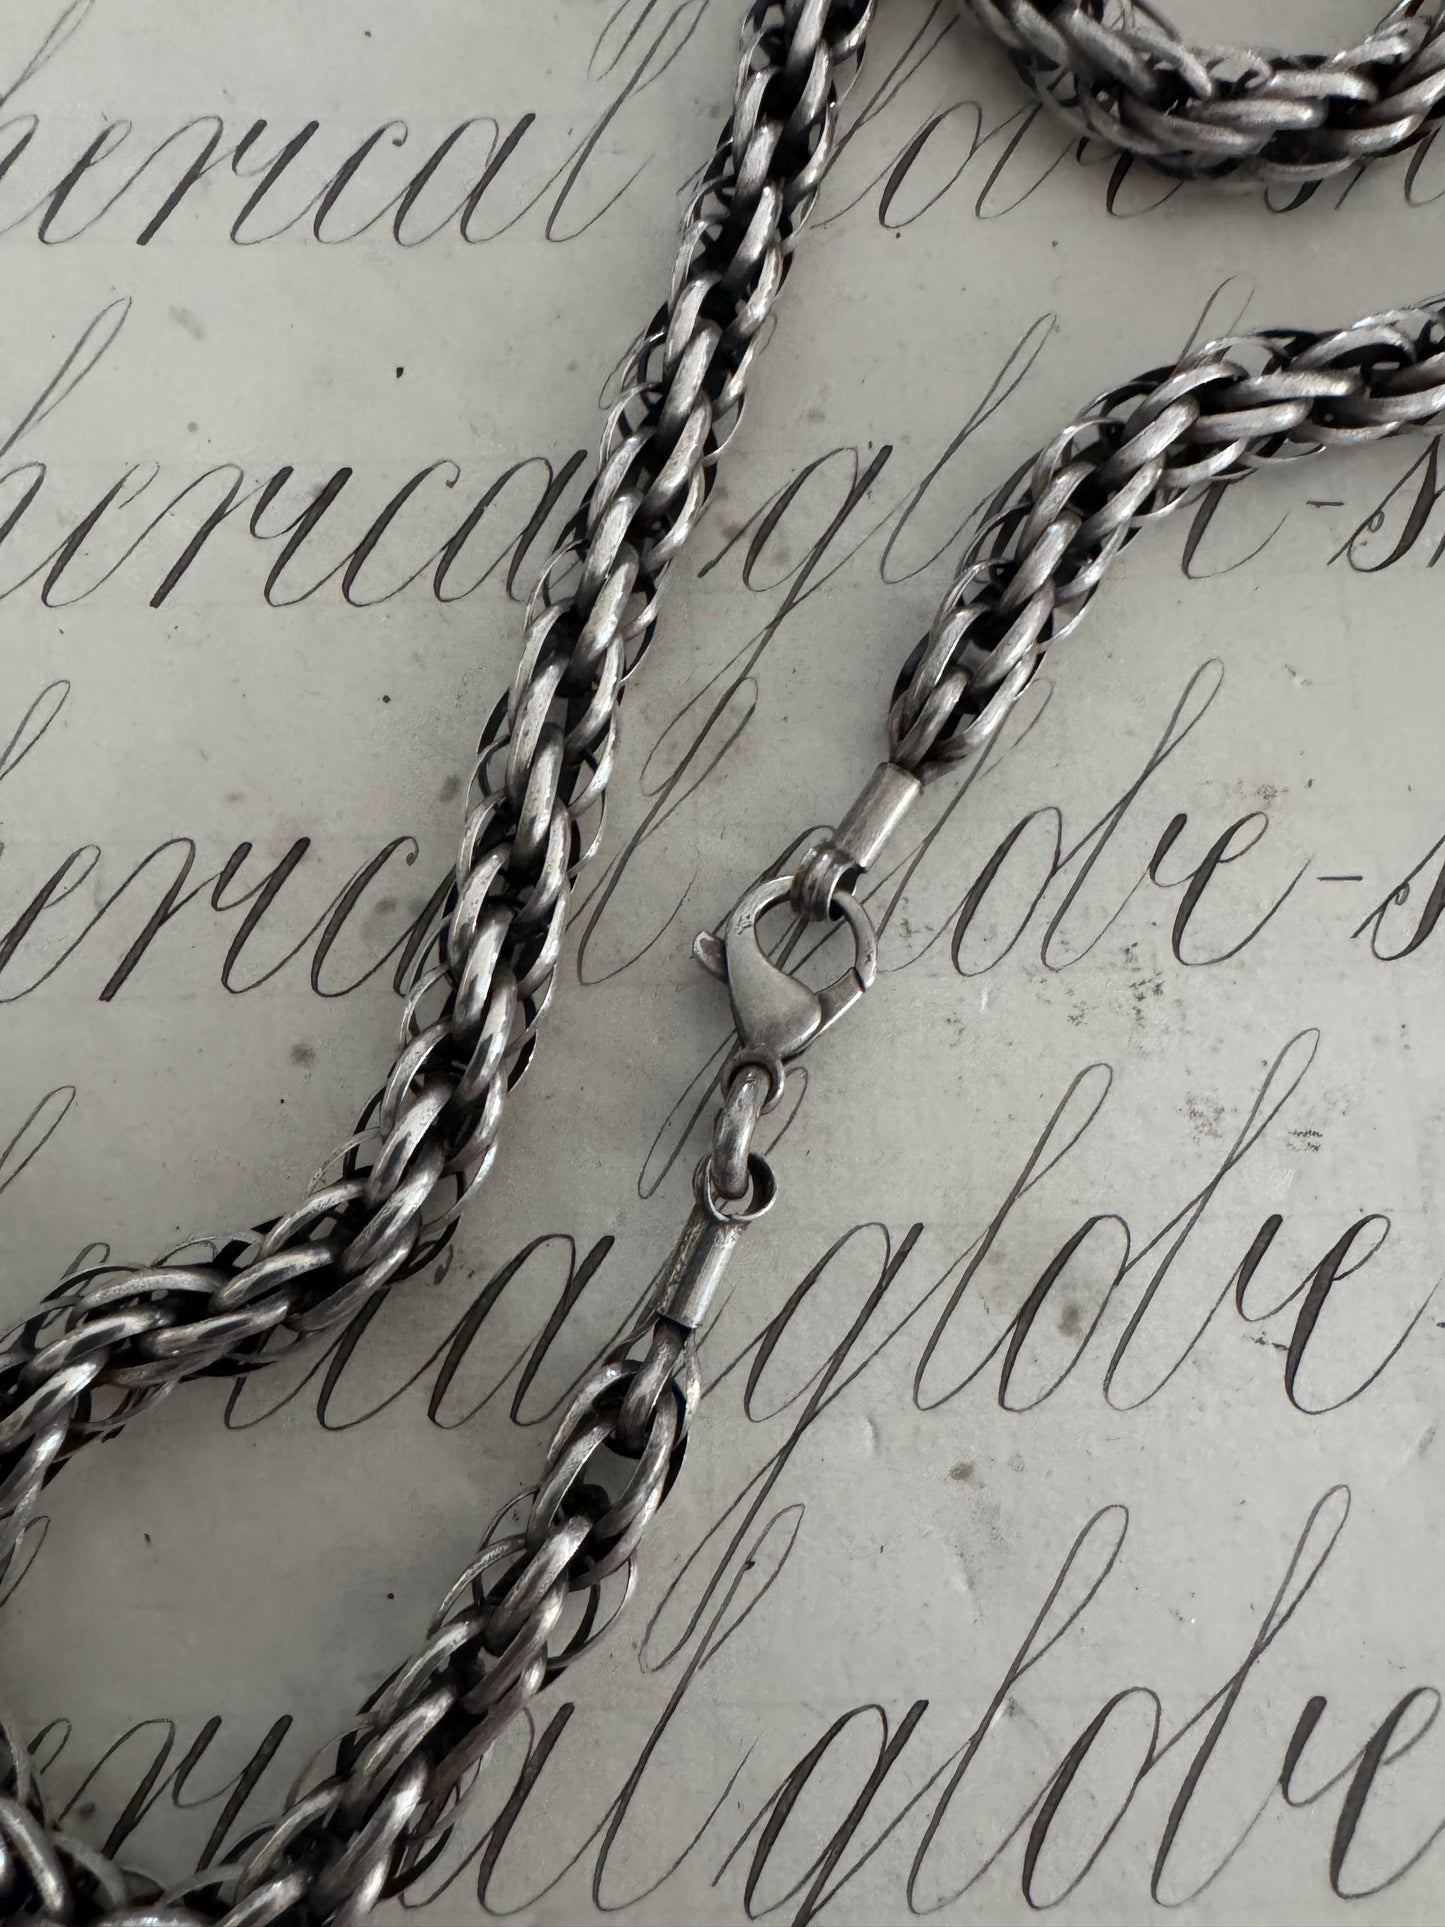 herical globe-sh
herical globe-s
erical globe-s
ical globe
erical globe